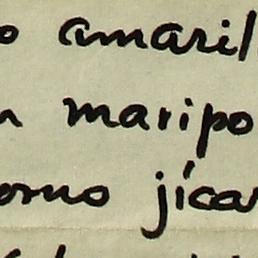 o amaril
n maripo
omo jícar